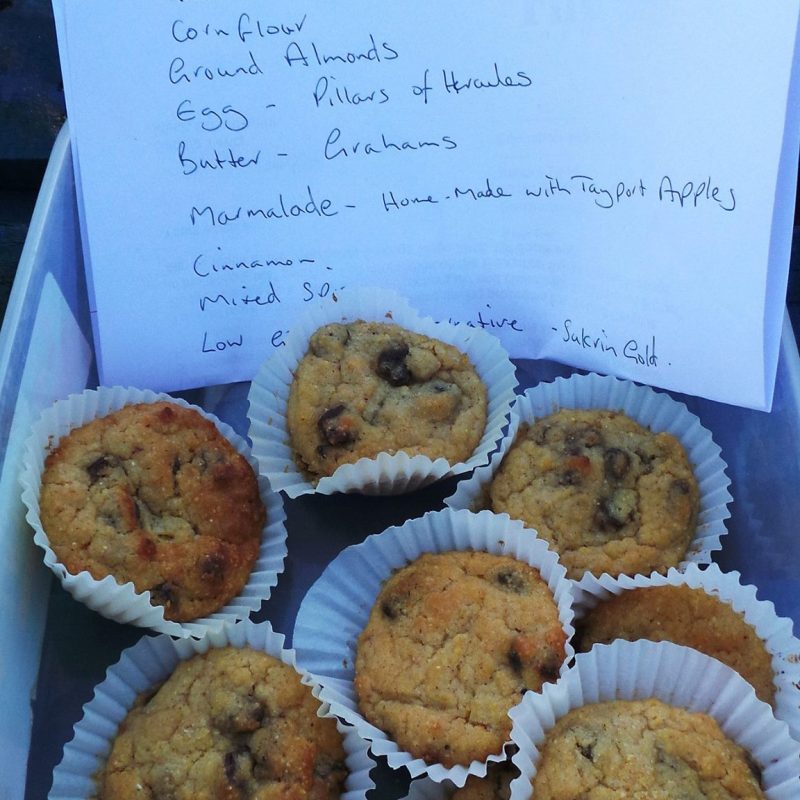 Cornflour
Ground Almonds
Egg - Pillars of Hercules
Butter - Grahams
Marmalade - Home-Made with Tayport Apples
Cinnamon.
Mixed
Low - Sukrin Gold.